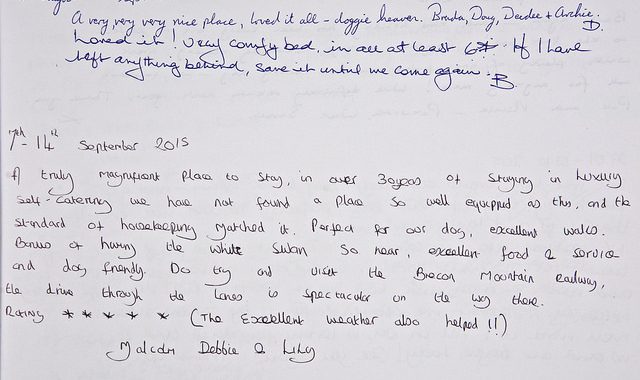 A very, very very nice place, loved it all - doggie heaven. Brenda, Doug, Deedee + Archie.
D.
Loved it! Very comfy bed, in all at least 6*. If I have
left anything behind, save it until we come again. B
7th - 14th September 2015
A truly magnificent place to stay, in over 30 years of staying in luxury
self-catering we have not found a place so well equipped as this, and the
standard of housekeeping matched it. Perfect for our dog, excellent walks.
Bonus of having the White Swan so near, excellent food & service
and dog friendly. Do try and visit the Brecon Mountain Railway,
the drive through the lanes is spectacular on the way there.
Rating * * * * * (The Excellent weather also helped!!)
Malcolm Debbie &